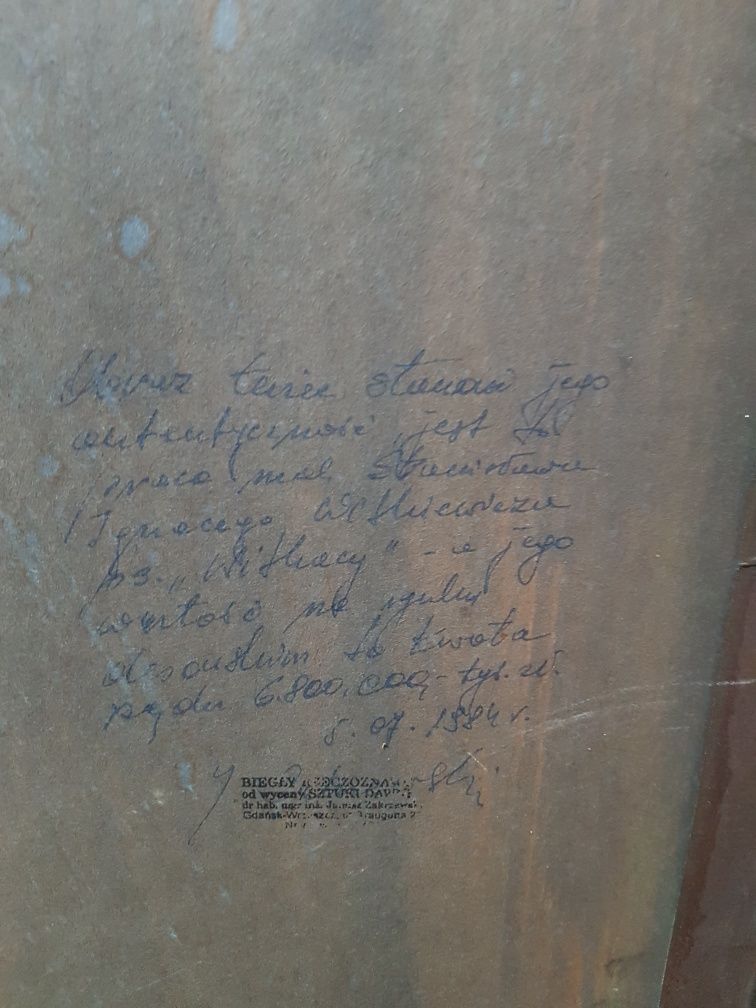 Obraz ten stanowi jego
autentyczność, jest to
praca mal. Stanisława
Ignacego Witkiewicza
ps. „Witkacy" - a jego
wartość na rynku
to kwota
rzędu 6.800.000,- tyś. zł.
5. 07. 1994 r.
BIEGŁY RZECZOZNAWCA
od wyceny SZTUKI DAWNEJ
dr hab. mgr inż. Janusz Zakrzewski
Gdańsk-Wrzeszcz, ul. Traugutta